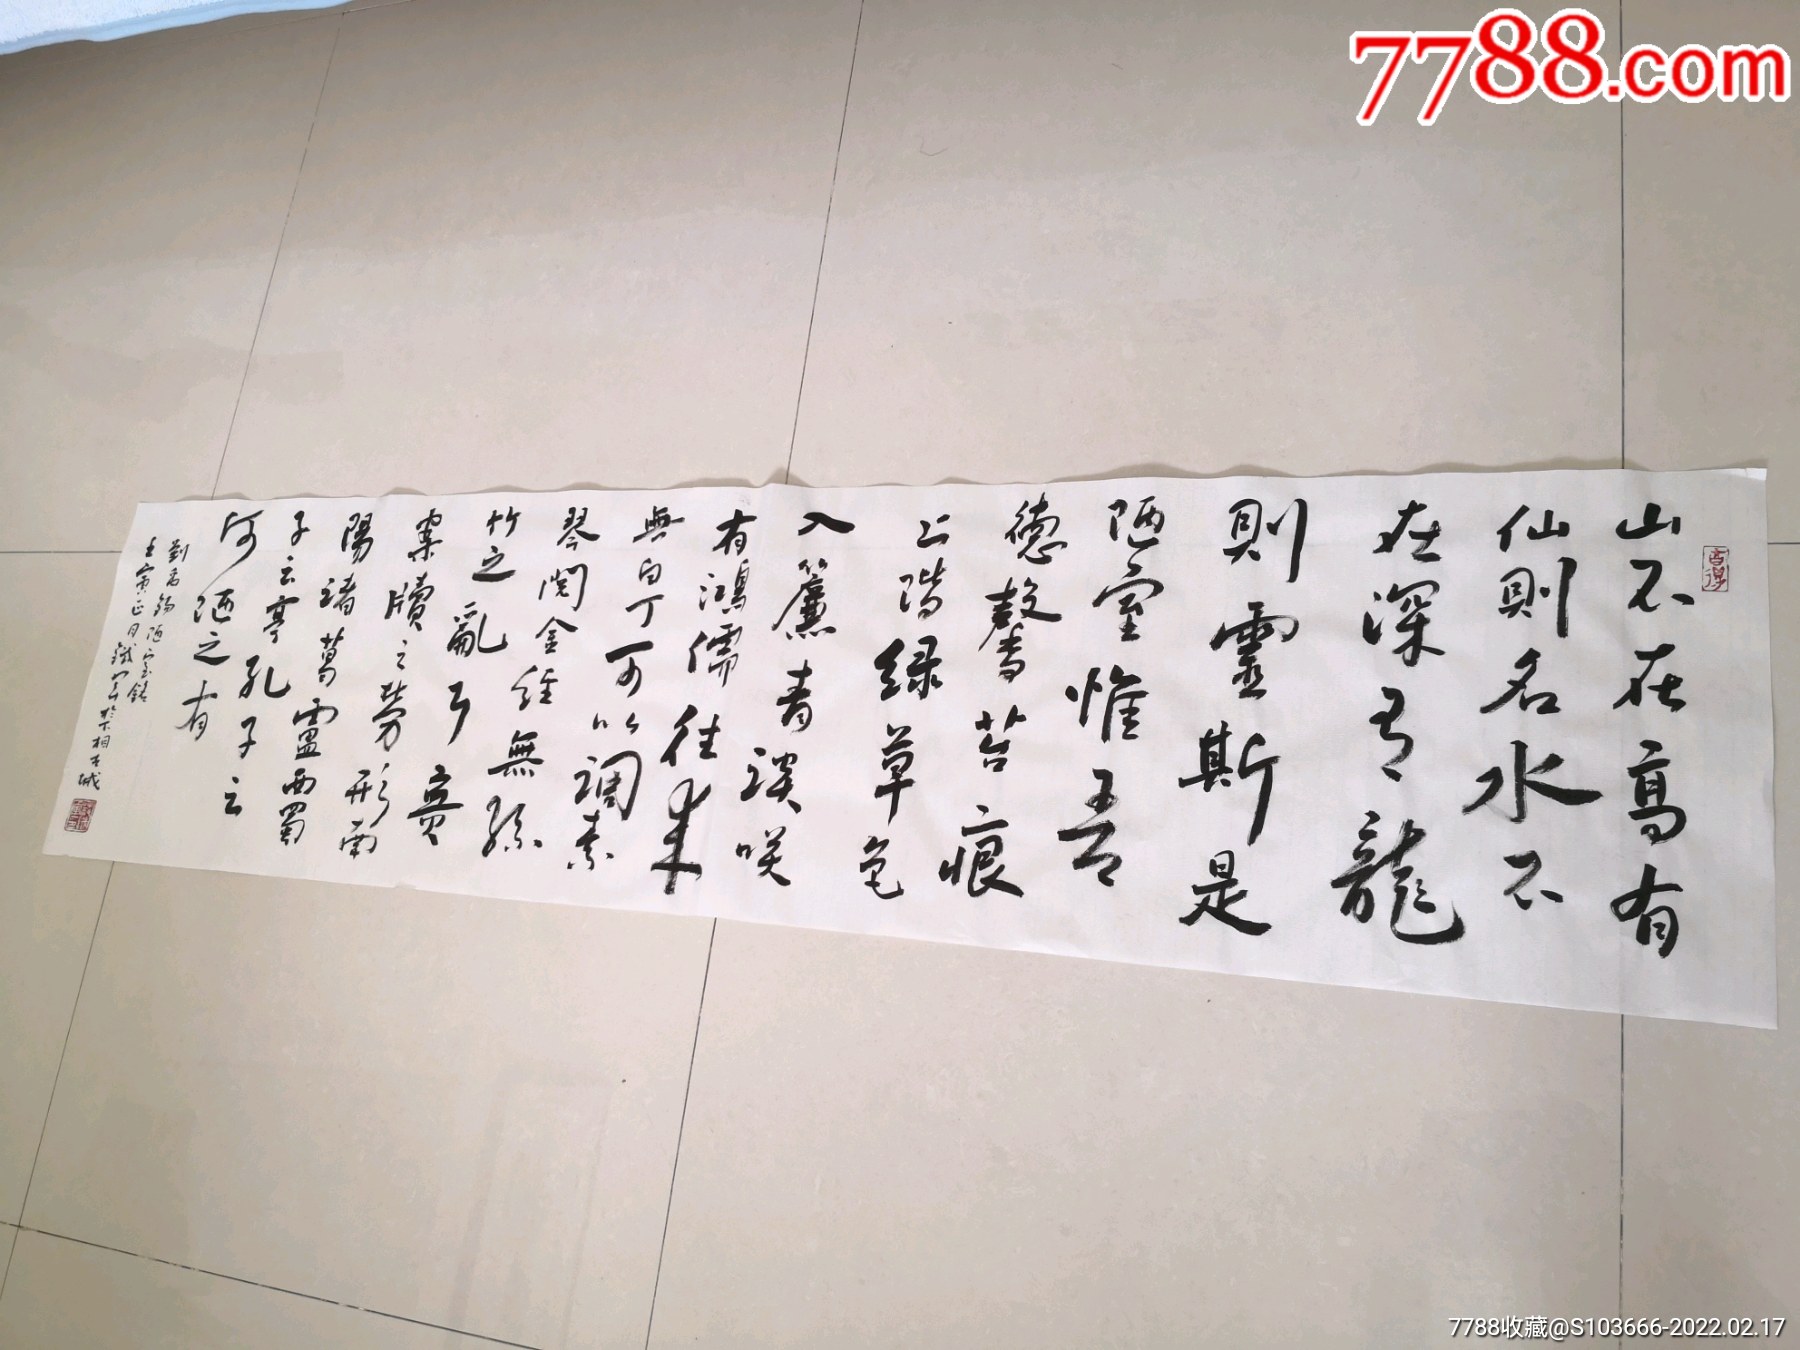 7788.com
山不在高有
仙則名水不
在深有龍
則靈斯是
陋室惟吾
德馨苔痕
上階緑草色
入簾青談咲
有鴻儒往来
無白丁可以調素
琴閲金經無絲
竹之亂耳無
案牘之勞形南
陽諸葛廬西蜀
子云亭孔子云
何陋之有
劉禹錫陋室銘
壬寅正月於下相古城
7788收藏@S103666-2022.02.17